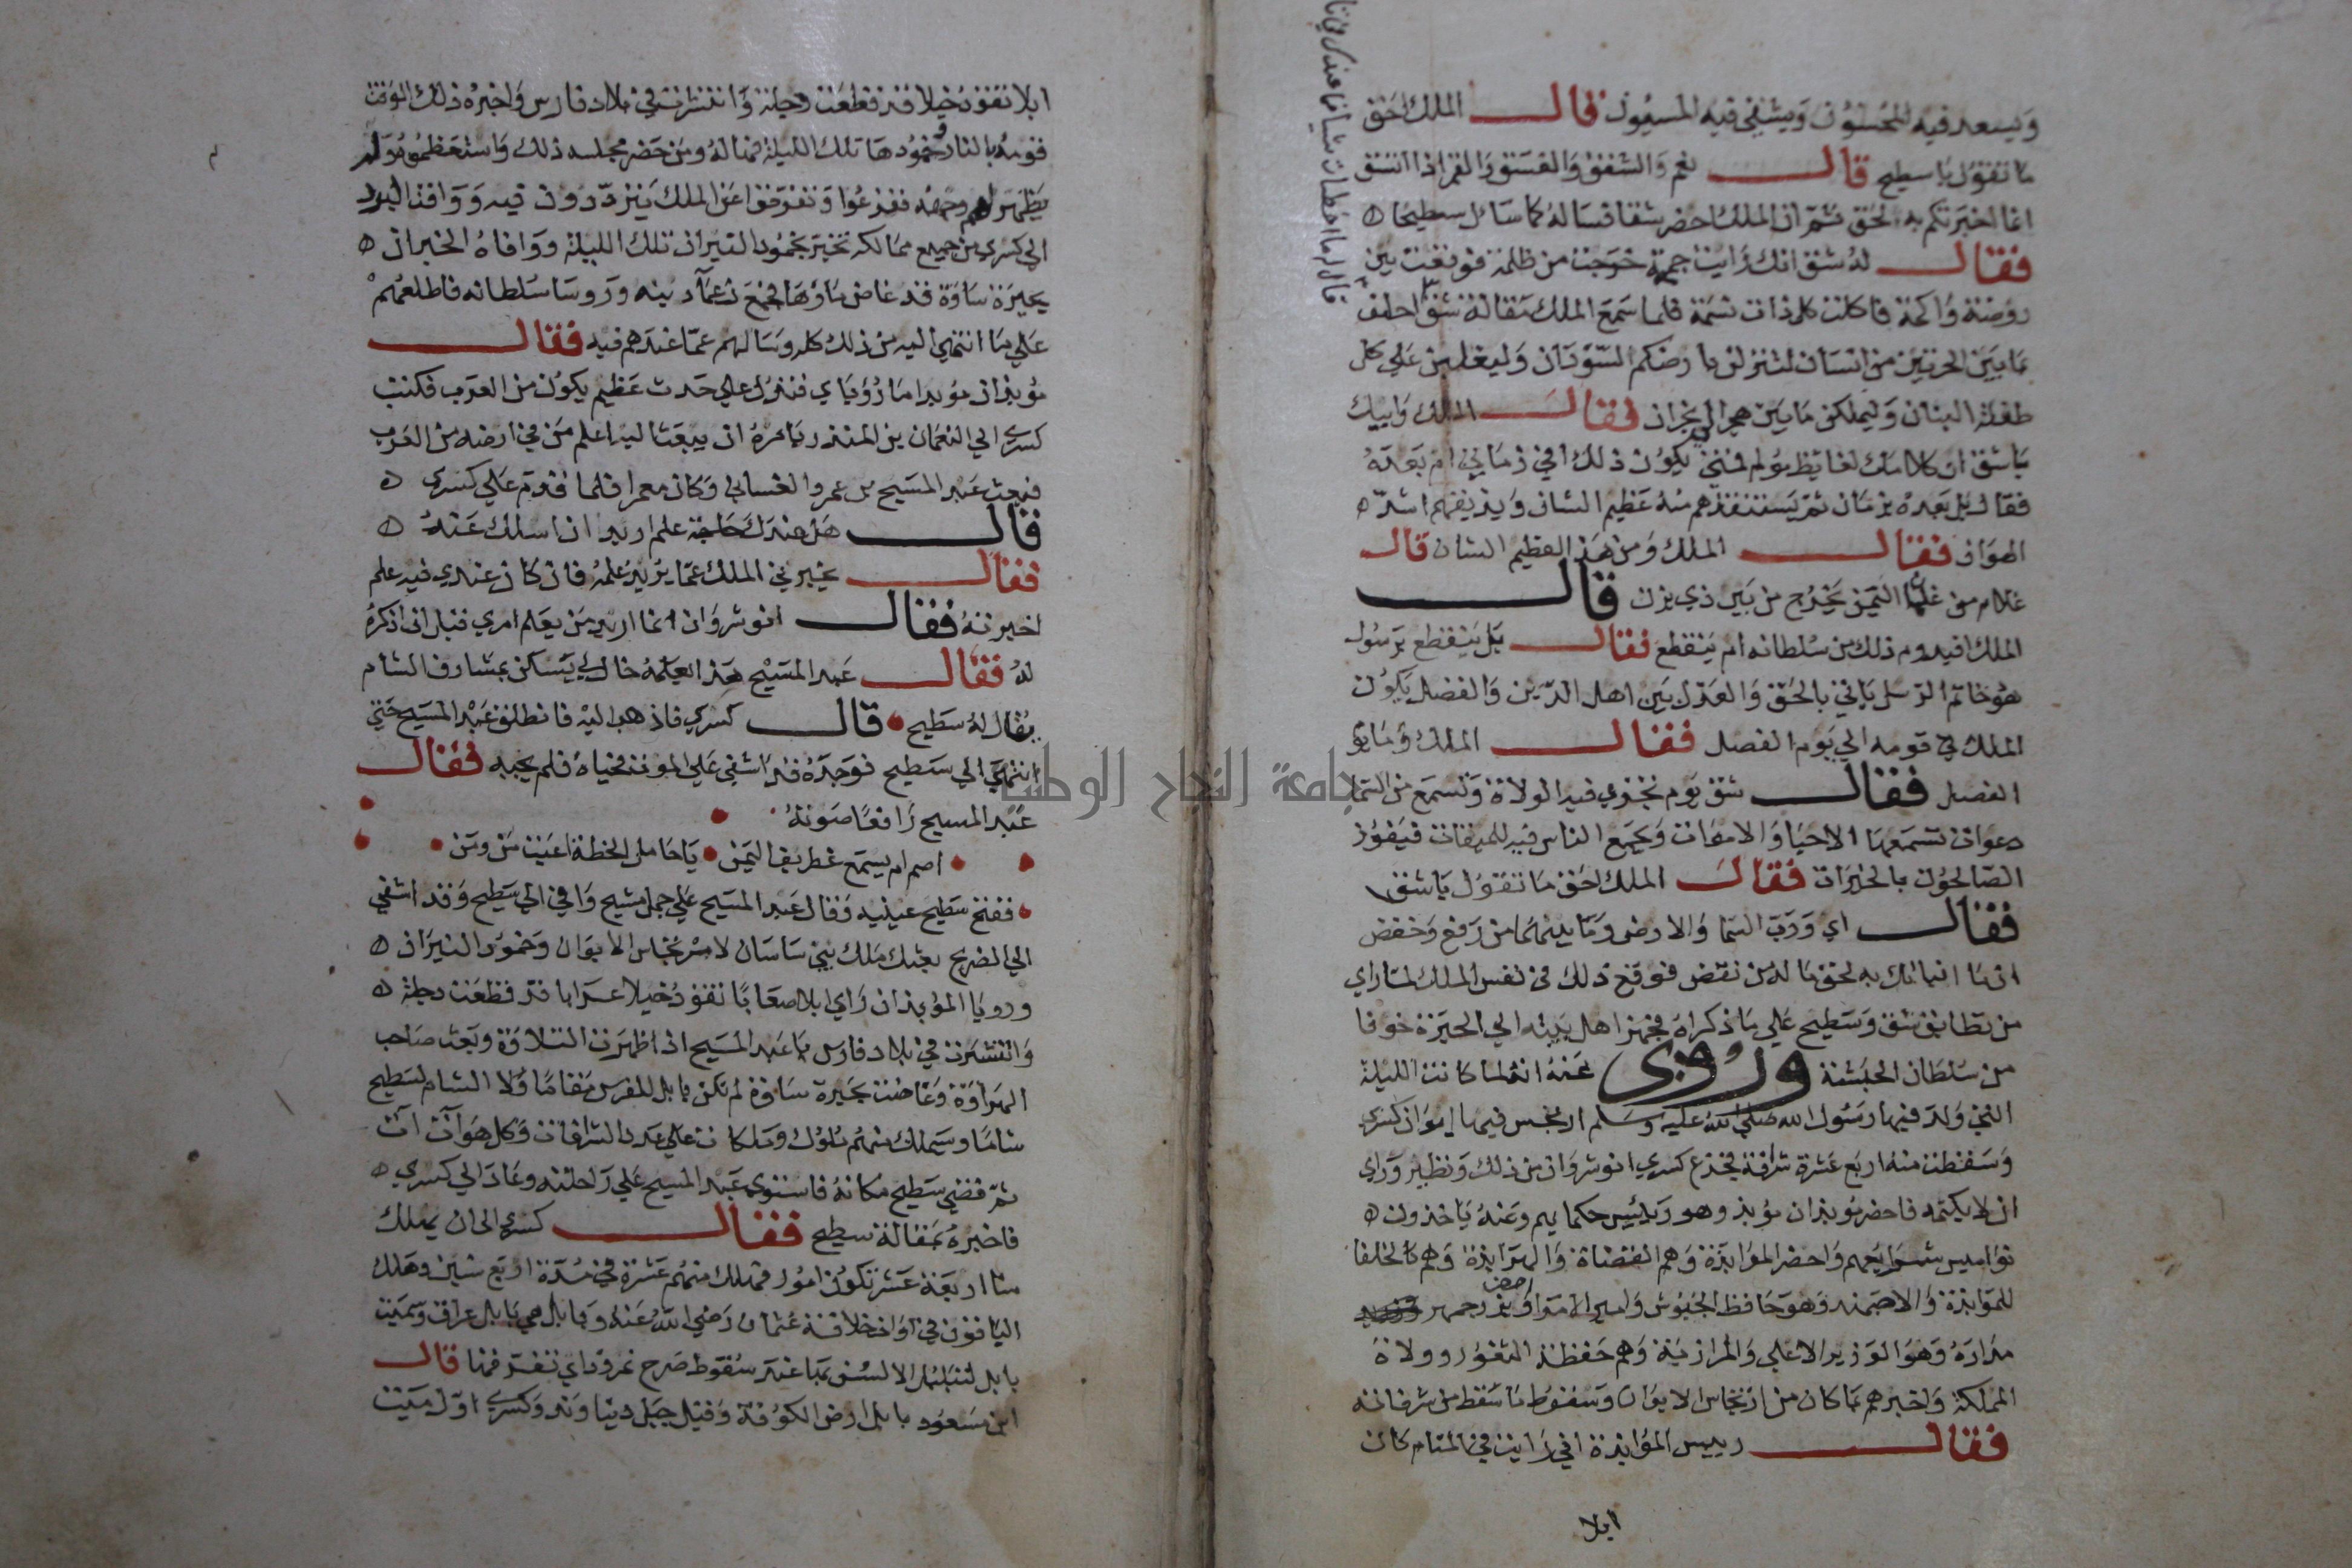 ويسعد فيه المحسنون ويشقى فيه المسيون قال الملك احق
ما تقول يا سطيح قال نعم والشفق والغسق والقمر اذا اتسق
انما اخبرتكم به لحق ثم ان الملك احضر شقا فساله كما سال سطيحا ه
فقال له شق انك رايت جمرة خرجت من ظلمة فوقعت بين
روضة واكمة فاكلت كل ذات نسمة فلما سمع الملك مقالة شق احلف
ما بين الحرتين من انسان لتنزلن بارضكم السودان وليغلبن علي كل
طفلة البنان وليملكن ما بين هجر الي نجران فقال الملك وابيك
يا شق ان كلامك لغايظ مولم فمتي يكون ذلك افي زماني ام بعده
فقال بل بعده بزمان ثم يستنقذهم منه عظيم الشان ويذيقهم اشد ه
الهوان فقال الملك ومن هذا العظيم الشان قال
غلام من غلمان اليمن يخرج من بين ذي يزن قال
الملك افيدوم ذلك من سلطانه ام ينقطع فقال بل ينقطع برسول
هو خاتم الرسل ياتي بالحق والعدل بين اهل الدين والفضل يكون
الملك في قومه الي يوم الفصل فقال الملك وما يوم
الفصل فقال شق يوم تجزي فيه الولاة وتسمع من السما
دعوات تسمعها الاحيا والاموات ويجمع الناس فيه للميقات فيفوز
الصالحون بالخيرات فقال الملك احق ما تقول يا شق
فقال اي ورب السما والارض وما بينهما من رفع وخفض
ان ما انباتك به لحق ما له من نقض فوقع ذلك في نفس الملك لما راي
من تطابق شق وسطيح علي ما ذكراه فجهز اهل بيته الي الحيرة خوفا
من سلطان الحبشة وروي عنه انه لما كانت الليلة
التي ولد فيها رسول الله صلي الله عليه وسلم ارتجس فيها ايوان كسري
وسقطت منه اربع عشرة شرافة فجزع كسري انوشروان من ذلك وتطير وراي
ان لا يكتمه فاحضر موبذان موبذ وهو رييس حكمايهم وعنه ياخذون ه
نواميس شرايعهم واحضر الموابذة وهم القضاة والهرابذة وهم كالخلفا
للموابذة والاصبهبذ وهو حافظ الجيوش وامير الامرا واحضر بزرجمهر
مداره وهو الوزير الاعلي والمرازبة وهم حفظة الثغور وولاة
المملكة واخبرهم بما كان من ارتجاس الايوان وسقوط ما سقط من شرفاته
فقال رييس الموابذة اني رايت في المنام كان
ابلا
ابلا تقود خيلا قد قطعت دجلة وانتشرت في بلاد فارس واخبره ذلك الوقت
قومه بالنار وخمودها تلك الليلة فهاله ومن حضر مجلسه ذلك واستعظموه ولم
يظهر لهم وجهه ففزعوا وتفرقوا عن الملك يتردّدون فيه ووافت البرد
الي كسري من جميع ممالكه تخبر بخمود النيران تلك الليلة ووافاه الخبر ان ه
بحيرة ساوة قد غاض ماوها فجمع زعمآ دينه وروسا سلطانه فاطلعهم
علي ما انتهي اليه من ذلك كله وسالهم عما عندهم فيه فقال
موبذان موبذ اما روياي فتدل علي حدث عظيم يكون من العرب فكتب
كسري الي النعمان بن المنذر يامره ان يبعث اليه اعلم من في ارضه من العرب
فبعث عبد المسيح بن عمرو الغساني وكان معمرا فلما قدم علي كسري ه
قال هل عندك علم اريد ان اسلك عنه ه
فقال يخبرني الملك عما يريد علمه فان كان عندي فيه علم
اخبرته فقال انوشروان انما اريد من يعلم امري قبل ان اذكره
له فقال عبد المسيح هذا يعلمه خال لي يسكن بمشارف الشام
يقال له سطيح قال كسري فاذهب اليه فانطلق عبد المسيح حتي
انتهي الي سطيح فوجده قد اشفي علي الموت فحياه فلم يجبه فقال
عبد المسيح رافعا صوته
اصم ام يسمع غطريف اليمن يا حامل الخطة اعيت من ومن
ففتح سطيح عينيه وقال عبد المسيح علي جمل مشيح وافي الي سطيح وقد اشفي
الي الضريح بعثك ملك بني ساسان لامر تجاس الايوان وخمود النيران ه
ورويا الموبذان راي ابلا صعابا تقود خيلا عرابا قد قطعت دجلة ه
وانتشرت في بلاد فارس يا عبد المسيح اذا ظهرت التلاوة وبعث صاحب
الهراوة وغاضت بحيرة ساوة لم تكن بابل للفرس مقاما ولا الشام لسطيح
شاما وسيملك منهم ملوك وملكات علي عدد الشرافات وكل هو آت آت
ثم قضي سطيح مكانه فاستوي عبد المسيح علي راحلته وعاد الي كسري ه
فاخبره بمقالة سطيح فقال كسري الي ان يملك
منا اربعة عشر تكون امور فملك منهم عشرة في مدة اربع سنين وهلك
الباقون في اواخر خلافة عثمان رضي الله عنه وبابل هي بابل عراق وسميت
بابل لتبلبل الالسن بها عند سقوط صرح نمرود اي تفرقها قال
ابن مسعود بابل ارض الكوفة وقيل جبل دنباوند وكسري اول ميت
جامعة النجاح الوطنية